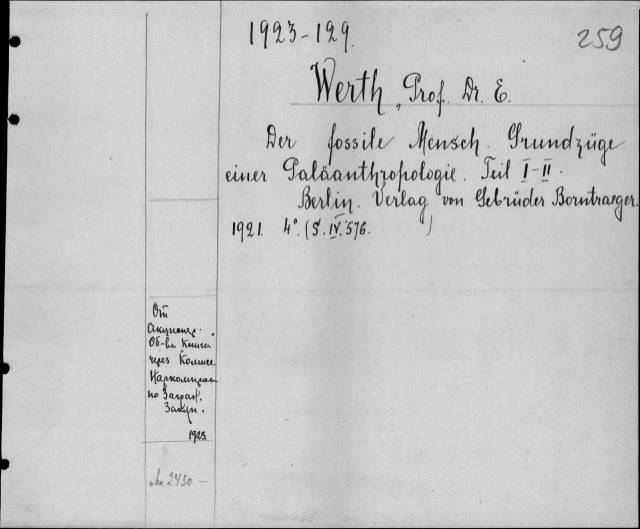 1923-129.
259
Werth, Prof. Dr. E.
Der fossile Mensch. Grundzüge
einer Paläanthropologie. Teil I-II.
Berlin. Verlag von Gebrüder Borntraeger.
1921. 4°. (S. IV. 576. )
От
Акционер.
Об-ва Книга
через Комисс.
по Загран.
Закуп.
1923
2430 —